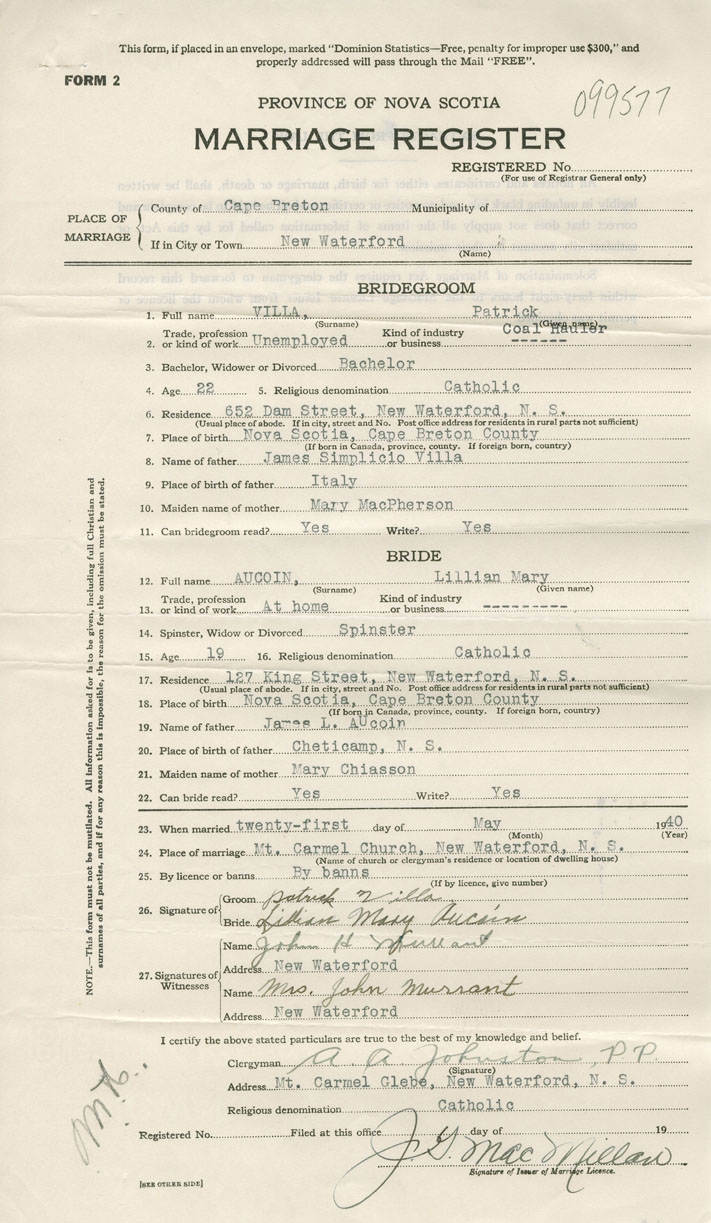 This form, if placed in an envelope, marked "Dominion Statistics—Free, penalty for improper use $300," and
properly addressed will pass through the Mail "FREE".
FORM 2
099577
PROVINCE OF NOVA SCOTIA
MARRIAGE REGISTER
REGISTERED No.
(For use of Registrar General only)
PLACE OF MARRIAGE
County of Cape Breton Municipality of
If in City or Town New Waterford
(Name)
BRIDEGROOM
1. Full name VILLA, Patrick
(Surname) (Given name)
Coal Hauler
2. Trade, profession or kind of work Unemployed Kind of industry or business ------
3. Bachelor, Widower or Divorced Bachelor
4. Age 22 5. Religious denomination Catholic
6. Residence 652 Dam Street, New Waterford, N. S.
(Usual place of abode. If in city, street and No. Post office address for residents in rural parts not sufficient)
7. Place of birth Nova Scotia, Cape Breton County
(If born in Canada, province, county. If foreign born, country)
8. Name of father James Simplicio Villa
9. Place of birth of father Italy
10. Maiden name of mother Mary MacPherson
11. Can bridegroom read? Yes Write? Yes
BRIDE
12. Full name AUCOIN, Lillian Mary
(Surname) (Given name)
13. Trade, profession or kind of work At home Kind of industry or business ---------
14. Spinster, Widow or Divorced Spinster
15. Age 19 16. Religious denomination Catholic
17. Residence 127 King Street, New Waterford, N. S.
(Usual place of abode. If in city, street and No. Post office address for residents in rural parts not sufficient)
18. Place of birth Nova Scotia, Cape Breton County
(If born in Canada, province, county. If foreign born, country)
19. Name of father James L. AUcoin
20. Place of birth of father Cheticamp, N. S.
21. Maiden name of mother Mary Chiasson
22. Can bride read? Yes Write? Yes
23. When married twenty-first day of May 1940
(Month) (Year)
24. Place of marriage Mt. Carmel Church, New Waterford, N. S.
(Name of church or clergyman's residence or location of dwelling house)
25. By licence or banns By banns
(If by licence, give number)
26. Signature of
Groom Patrick Villa
Bride Lillian Mary Aucoin
27. Signatures of Witnesses
Name John H Murrant
Address New Waterford
Name Mrs. John Murrant
Address New Waterford
I certify the above stated particulars are true to the best of my knowledge and belief.
Clergyman A. A. Johnston, P.P.
(Signature)
Address Mt. Carmel Glebe, New Waterford, N. S.
Religious denomination Catholic
Registered No. Filed at this office day of 19
J. G. MacMillan
Signature of Issuer of Marriage Licence.
[SEE OTHER SIDE]
NOTE.—This form must not be mutilated. All information asked for is to be given, including full Christian and
surnames of all parties, and if for any reason this is impossible, the reason for the omission must be stated.